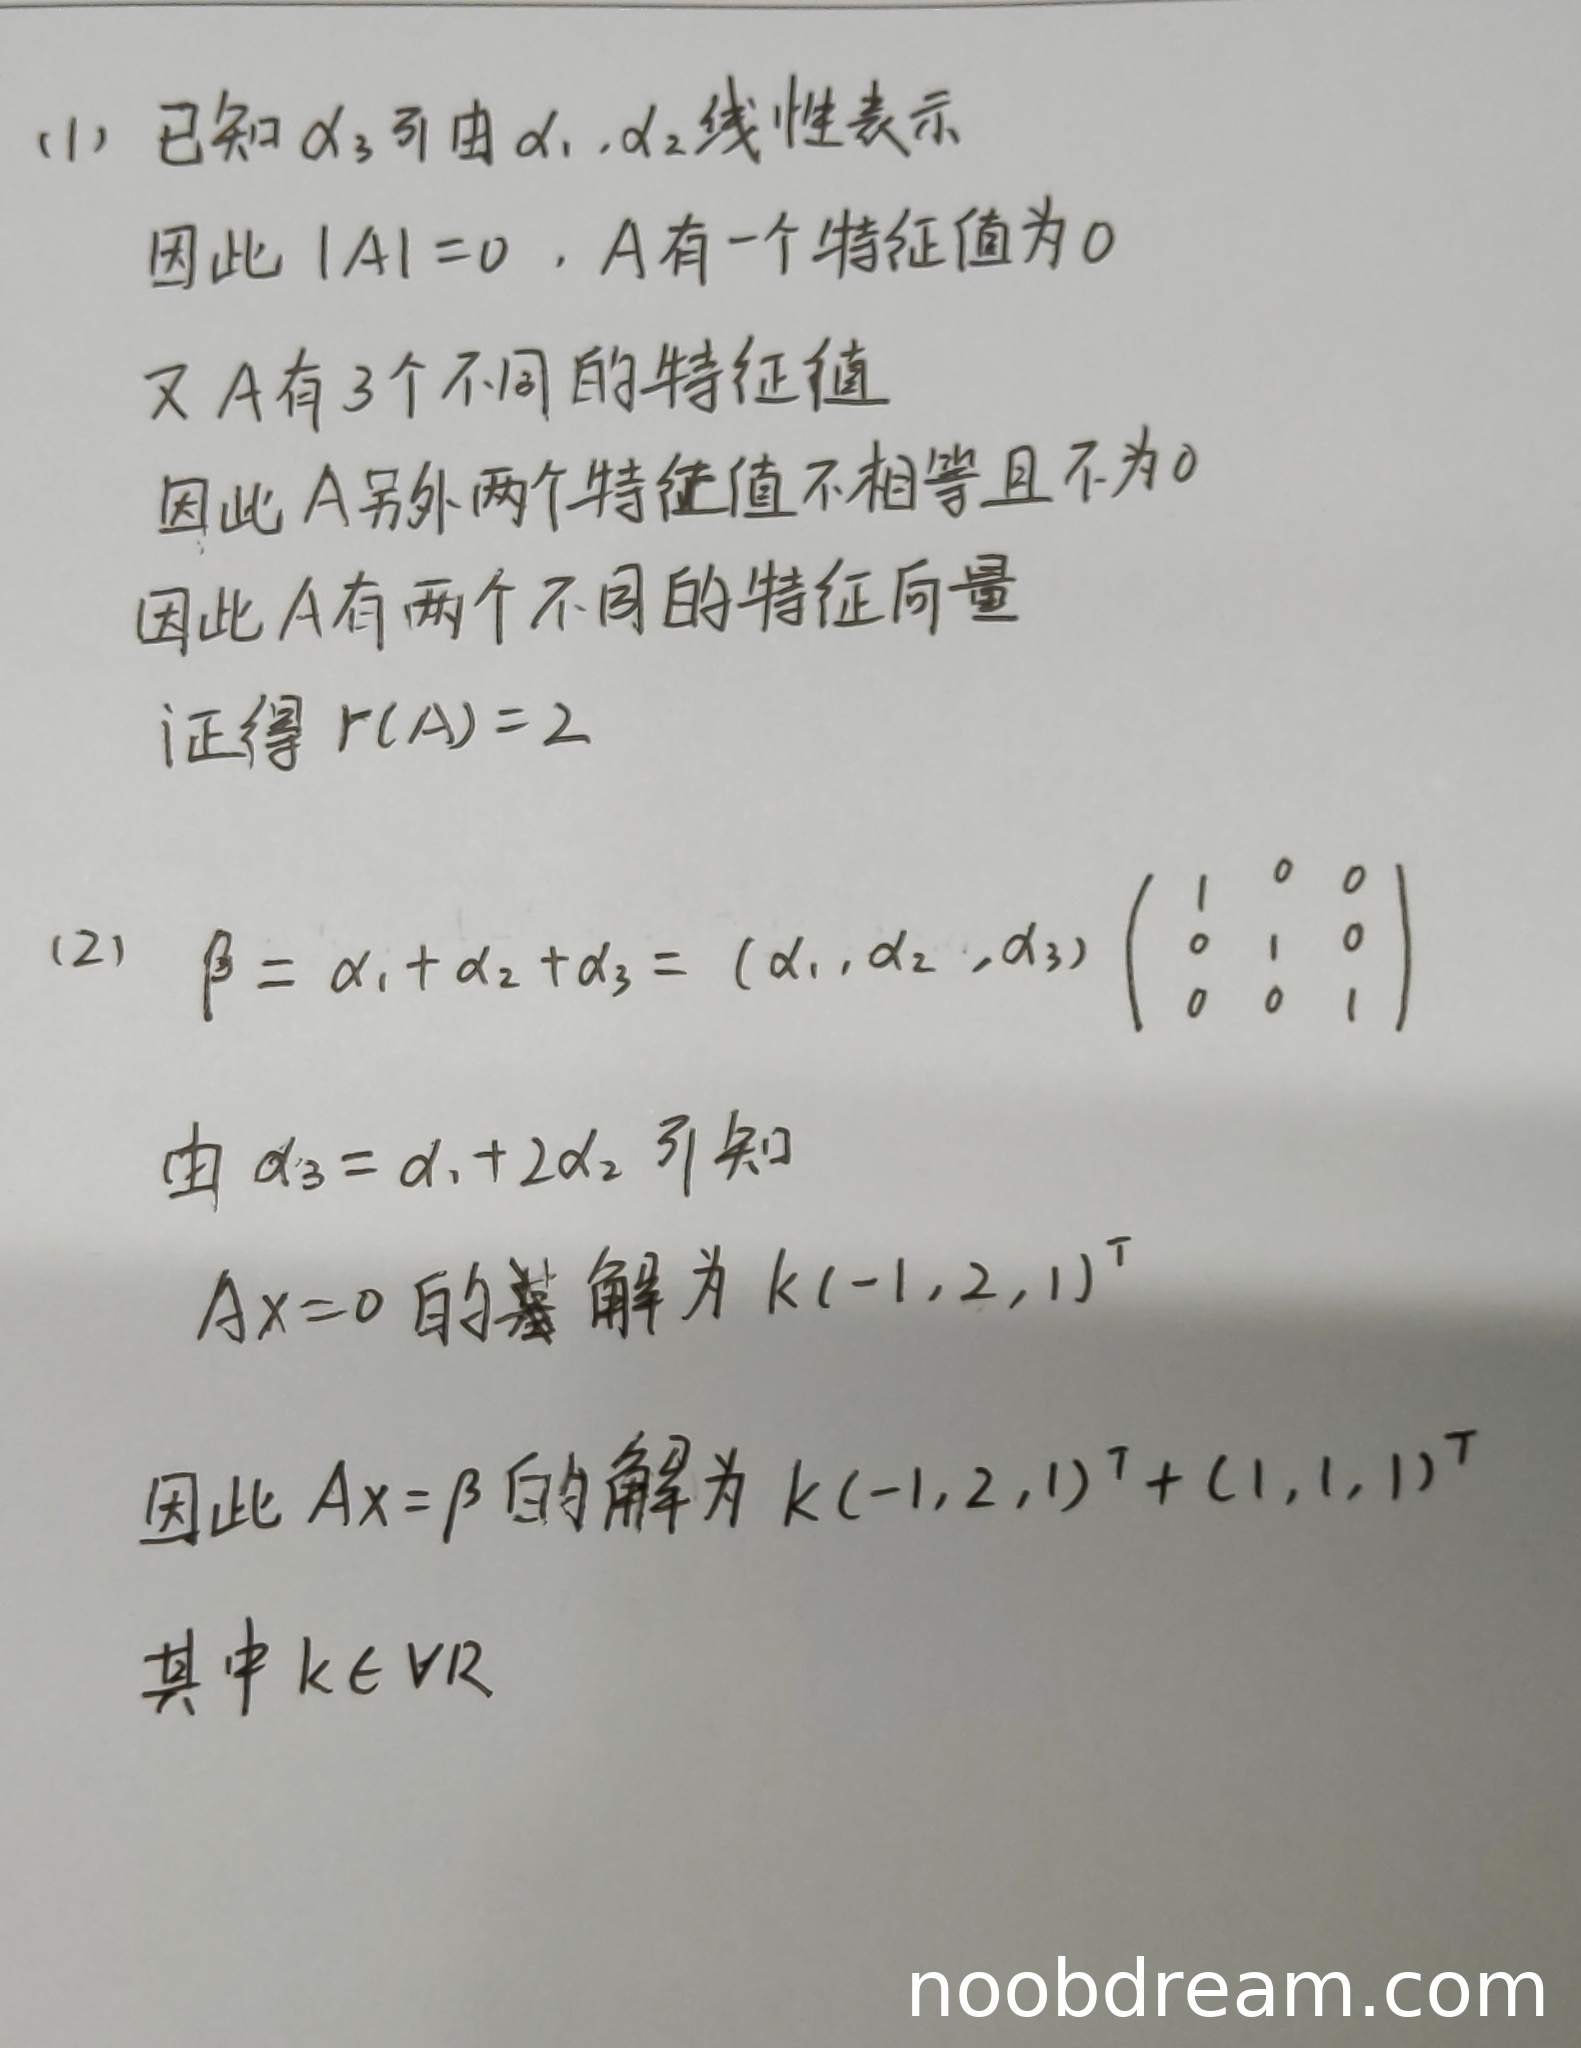 (1) 已知α₃可由α₁,α₂线性表示
因此 |A|=0 , A有一个特征值为0
又A有3个不同的特征值
因此A另外两个特征值不相等且不为0
因此A有两个不同的特征向量
证得 r(A)=2
(2) β = α₁+α₂+α₃ = (α₁,α₂,α₃) ( 1 0 0
0 1 0
0 0 1 )
由 α₃=α₁+2α₂ 可知
Ax=0 的解为 k(-1,2,1)ᵀ
因此 Ax=β 的解为 k(-1,2,1)ᵀ+(1,1,1)ᵀ
其中 k∈∀R
noobdream.com